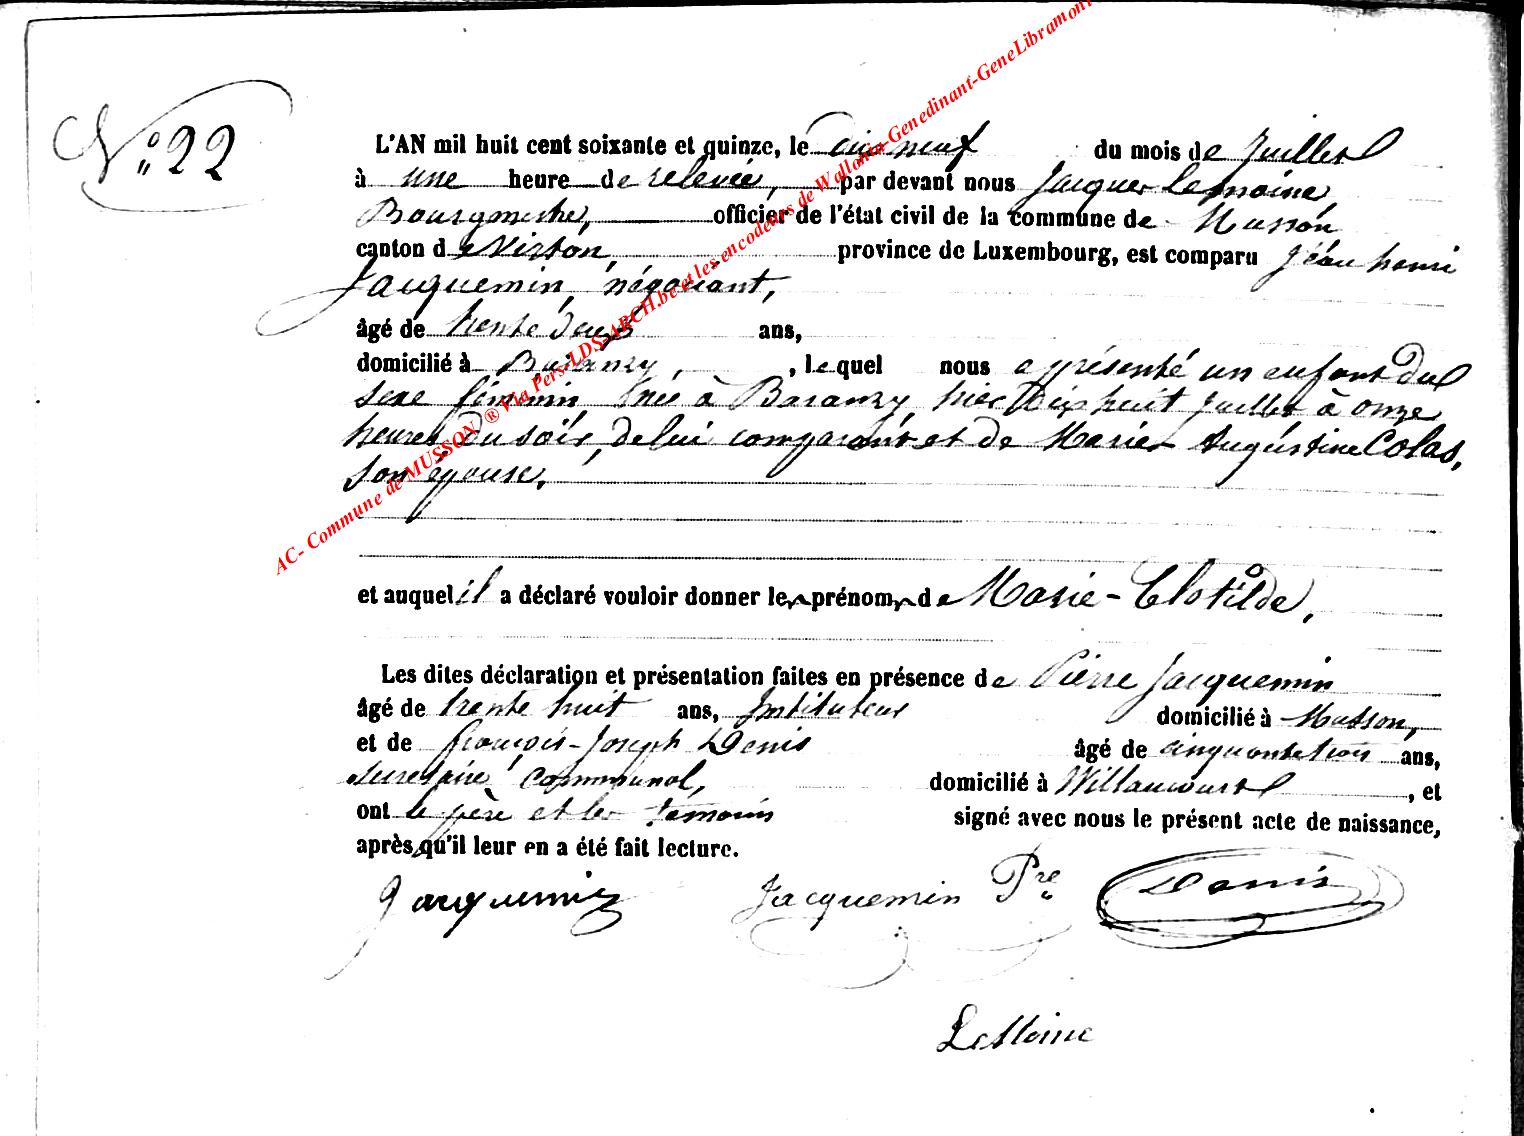 N° 22
L'AN mil huit cent soixante et quinze, le dix neuf du mois de Juillet
à une heure de relevée, par devant nous Jacques Lemoine,
Bourgmestre, officier de l'état civil de la commune de Musson
canton de Virton, province de Luxembourg, est comparu Jean henri
Jacquemin, négociant,
âgé de trente deux ans,
domicilié à Baranzy, lequel nous a présenté un enfant du
sexe féminin née à Baranzy, hier Dix huit Juillet à onze
heures du soir, de lui comparant et de Marie Augustine Colas,
son épouse.
et auquel il a déclaré vouloir donner le prénom de Marie-Clotilde,
Les dites déclaration et présentation faites en présence de Pierre Jacquemin
âgé de trente huit ans, Instituteur domicilié à Musson,
et de françois-Joseph Denis âgé de cinquante trois ans,
secretaire communal, domicilié à Willancourt, et
ont le père et les temoins signé avec nous le présent acte de naissance,
après qu'il leur en a été fait lecture.
Jacquemin Jacquemin Pre Denis
LeMoine
AC- Commune de MUSSON ® Via Pers-LDS-ARCH.be et les encodeurs de Wallonia-Genedinant-GeneLibramont